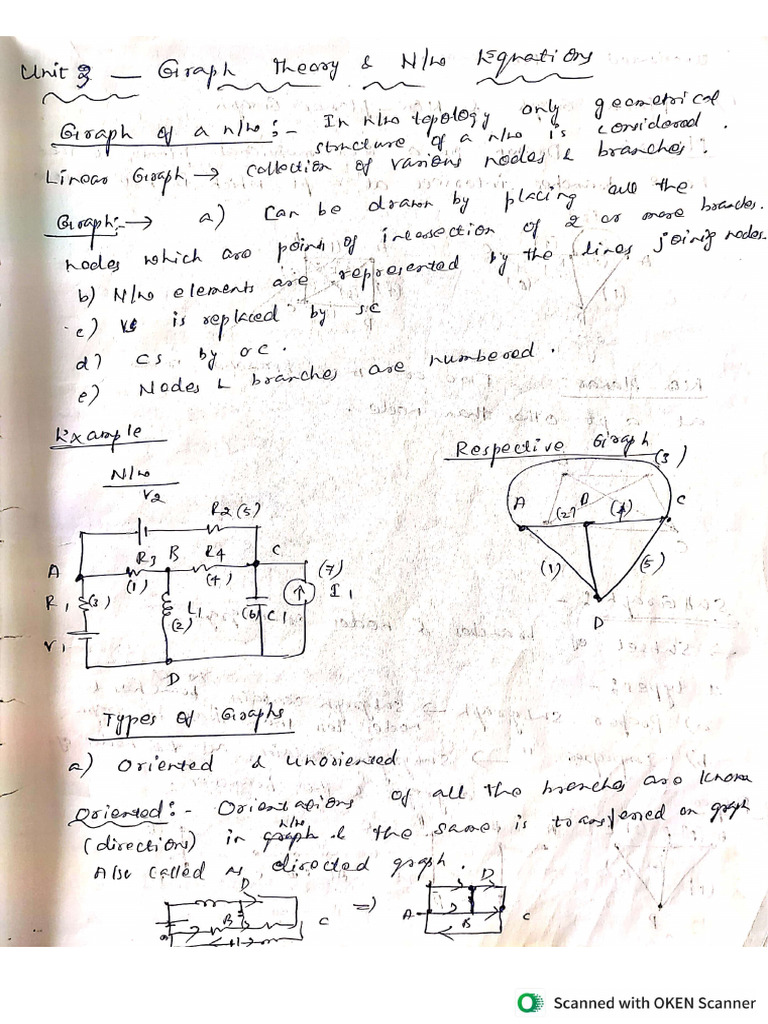 Unit 3 — Graph Theory & N/w Equations
Graph of a n/w :- In n/w topology only geometrical
structure of a n/w is considered.
Linear Graph → collection of various nodes & branches.
Graph:-→ a) Can be drawn by placing all the
nodes which are point of intersection of 2 or more branches.
b) N/w elements are represented by the lines joinig nodes.
c) VS is replaced by sc
d) CS by oc.
e) Nodes & branches are numbered.
Example
Respective Graph
N/w
V2
R2 (5)
(3)
A
D
C
(2)
(4)
R3
B
R4
C
(7)
A
(1)
(4)
(1)
(5)
R1
(3)
L1
(2)
(6)
C1
I1
V1
D
D
Types of Graphs
a) Oriented & Unoriented
Oriented:- Orientations of all the branches are known
(direction) in graph & the same is transferred on graph
n/w
Also called as directed graph.
D
D
B
C
⇒
A
B
C
Scanned with OKEN Scanner